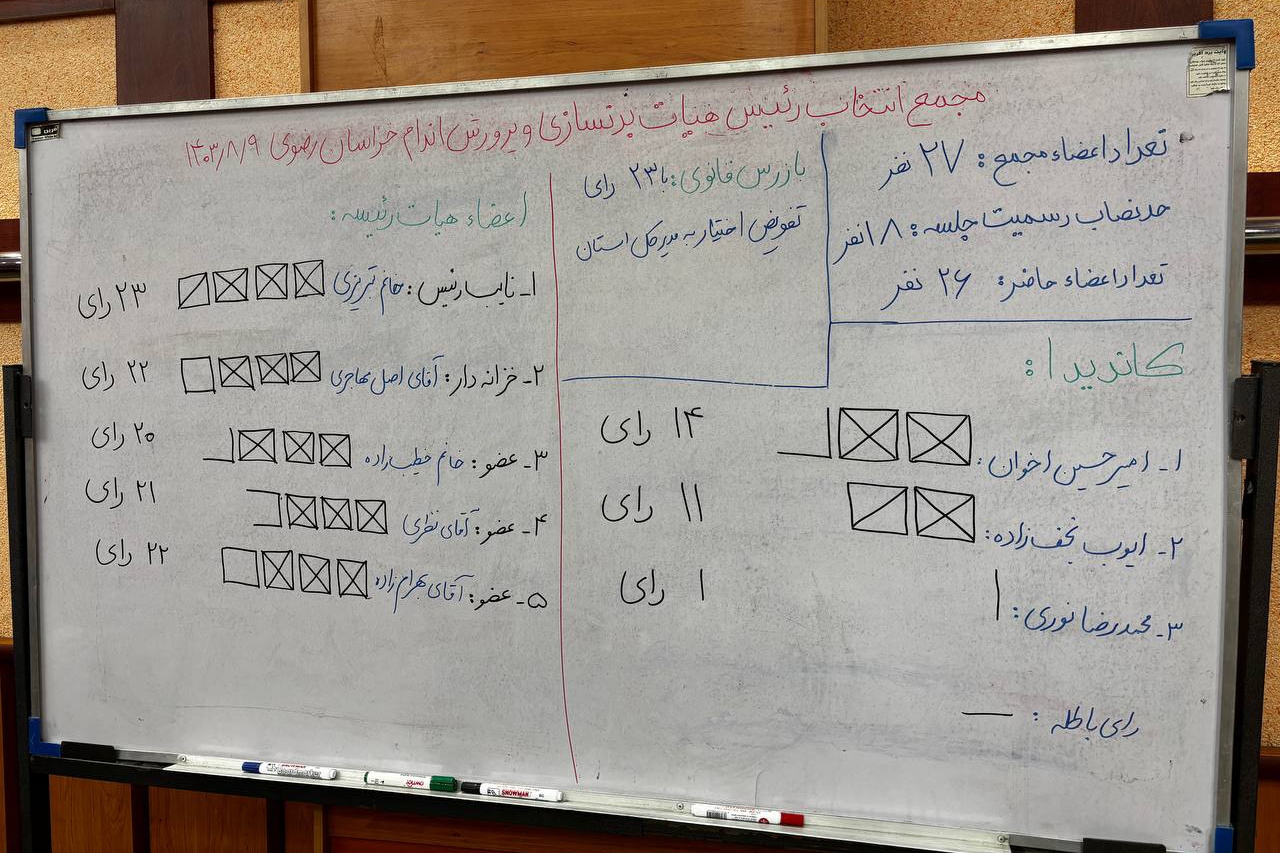 مجمع انتخاب رئیس هیات بدنسازی و پرورش اندام خراسان رضوی ۱۴۰۳/۸/۹
تعداد اعضاء مجمع: ۲۷ نفر
حد نصاب رسمیت جلسه: ۱۸ نفر
تعداد اعضاء حاضر: ۲۶ نفر
بازرس قانونی: با ۲۳ رای
تفویض اختیار به مدیرکل استان
کاندیدا:
۱- امیرحسین اخوان: ۱۴ رای
۲- ایوب نجف زاده: ۱۱ رای
۳- محمدرضا نوری: ۱ رای
رای باطله: —
اعضاء هیات رئیسه:
۱- نایب رئیس: خانم تبریزی ۲۳ رای
۲- خزانه دار: آقای اصل مهاجری ۲۲ رای
۳- عضو: خانم خطیب زاده ۲۰ رای
۴- عضو: آقای نظری ۲۱ رای
۵- عضو: آقای بهرام زاده ۲۲ رای
SNOWMAN